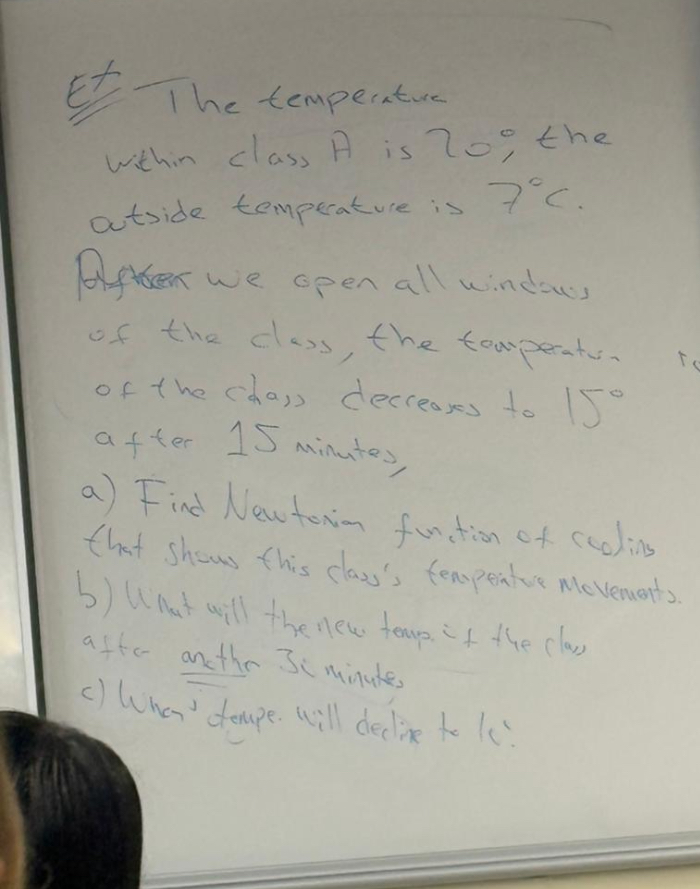 Ex The temperature
within class A is 20°, the
outside temperature is 7°C.
After we open all windows
of the class, the temperature
of the class decreases to 15°
after 15 minutes,
a) Find Newtonian function of cooling
that shows this class's temperature movements.
b) What will the new temp. of the class
after another 30 minutes
c) When tempe. will decline to